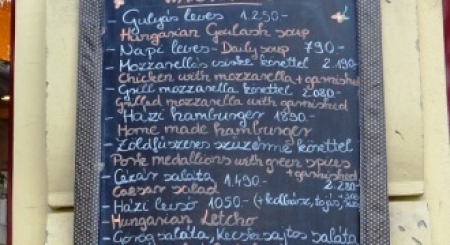 - Gulyás leves 1.250-
Hungarian Goulash soup
- Napi leves - Daily soup 790-
- Mozzarellás csirke körettel 2.190-
Chicken with mozzarella + garnished
- Grill mozzarella körettel 2.080-
Grilled mozzarella with garnished
- Házi hamburger 1890-
Home made hamburger
- Zöldfűszeres szűzérmék körettel
Pork medallions with green spices
+ garnished
- Cézár saláta 1.490- 2.280-
Caesar salad
- Házi lecsó 1050- (+ kolbász, tojás,
- Hungarian Letcho
- Görög saláta, kecskesajtos saláta